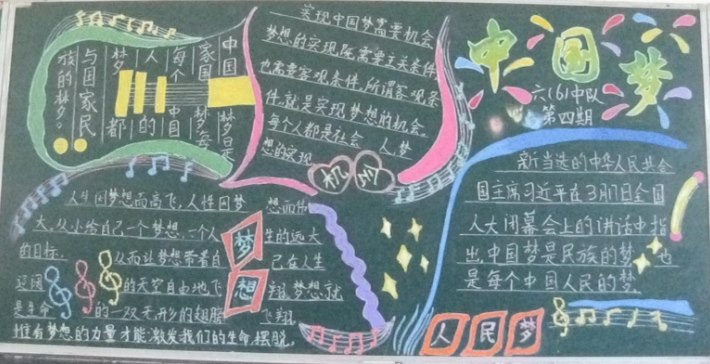 中国梦
六(6)中队
第四期
中国梦是
家国梦,每
每个中国
人的
梦都
与国家民
族的梦。
实现中国梦需要机会
梦想的实现既需要主关条件
也需要客观条件,所谓客观条
件,就是实现梦想的机会。
每个人都是社会 人,梦
想的实现
机会
新当选的中华人民共
国主席习近平在3月17日全国
人大闭幕会上的讲话中指
出,中国梦是民族的梦,也
是每个中国人民的梦.
人民梦
人生因梦想而高飞,人性因梦 想而伟
大,从小给自己一个梦想,一个人 生的远大
的目标. 从而让梦想带着自 己在人生
的天空自由地飞 翔.梦想就
是生命 的一双无形的翅膀 飞翔
惟有梦想的力量才能激发我们的生命,摆脱,
梦想